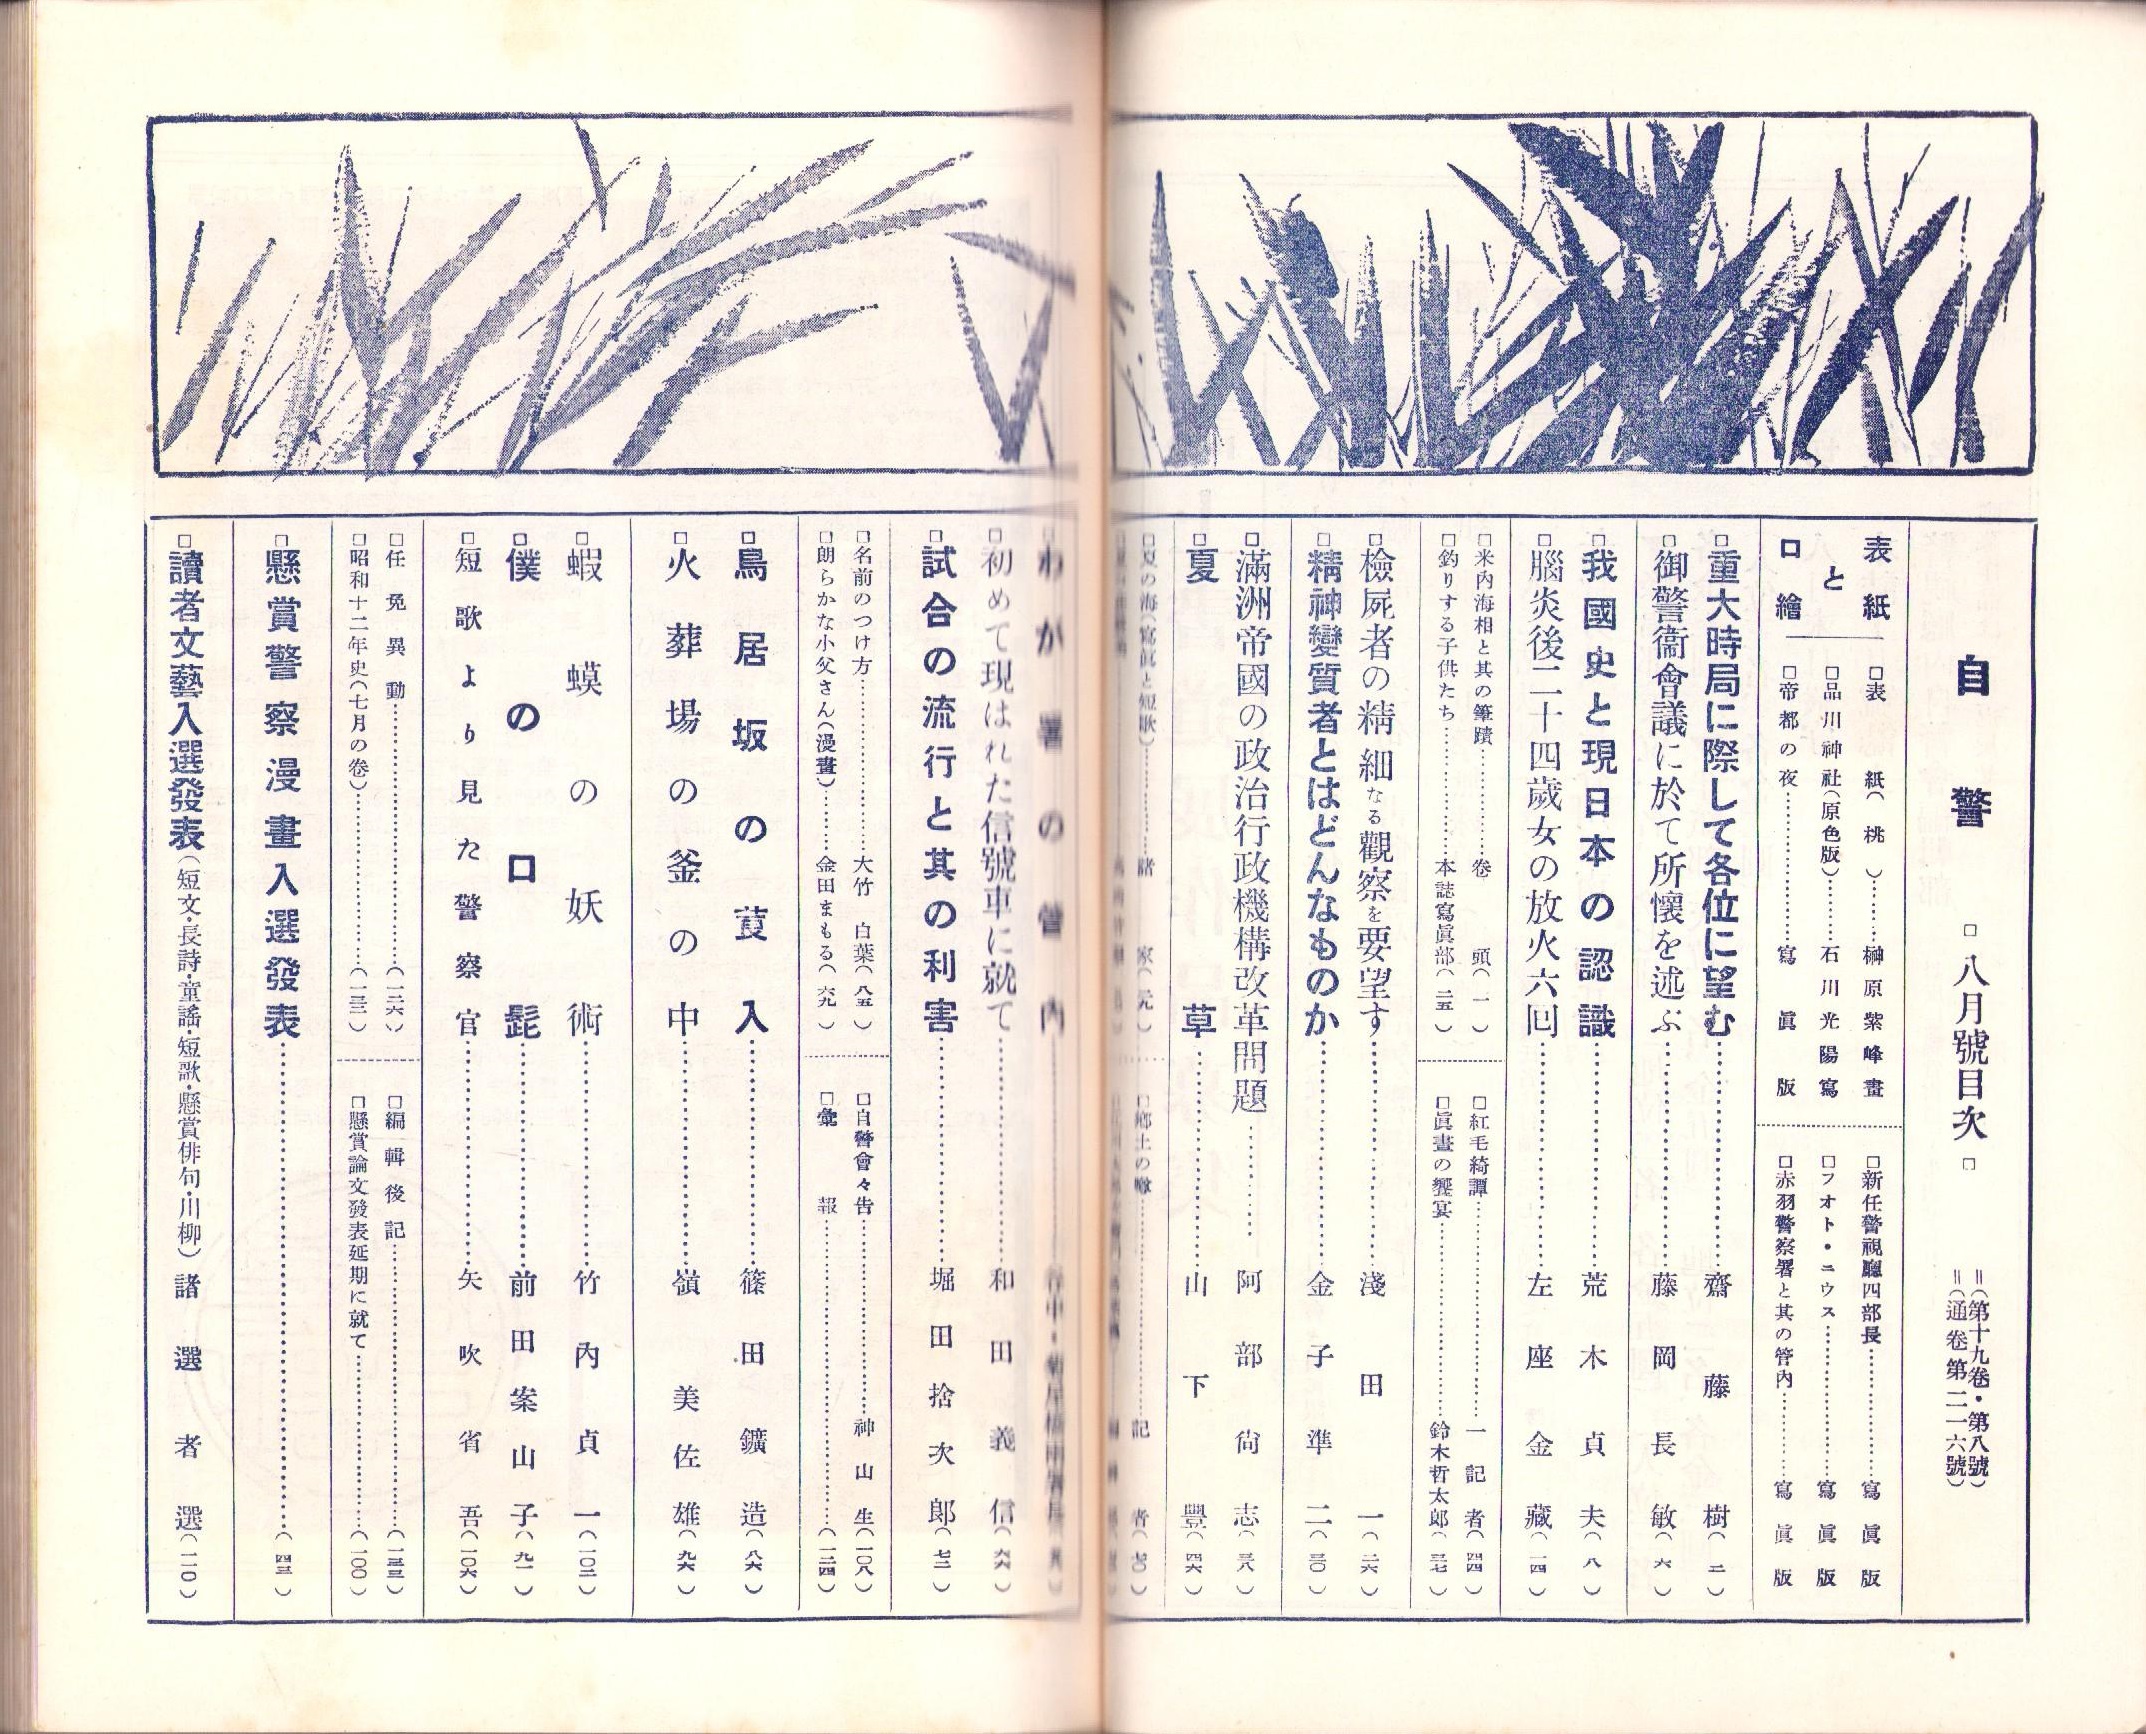 自警 □八月號目次□
=(第十九卷・第八號)
=(通卷第二一六號)
表紙と口繪
□表紙(桃)…………榊原紫峰畫
□品川神社(原色版)…………石川光陽寫
□帝都の夜…………寫眞版
□新任警視廳四部長…………寫眞版
□フオト・ニウス…………寫眞版
□赤羽警察署と其の管内…………寫眞版
□重大時局に際して各位に望む…………齋藤樹(二)
□御警衞會議に於て所懷を述ぶ…………藤岡長敏(六)
□我國史と現日本の認識…………荒木貞夫(八)
□腦炎後二十四歲女の放火六回…………左座金藏(一四)
□米內海相と其の筆蹟…………卷頭(一)
□釣りする子供たち…………本誌寫眞部(二五)
□紅毛綺譚…………一記者(四四)
□眞畫の饗宴…………鈴木哲太郎(三七)
□檢屍者の精細なる觀察を要望す…………淺田一(二六)
□精神變質者とはどんなものか…………金子準二(三〇)
□滿洲帝國の政治行政機構改革問題…………阿部尙志(三八)
□夏草…………山下豐(四六)
□夏の海(寫眞と短歌)…………諸家
□鄕土の噂…………記者(七〇)
□わが署の管內
□初めて現はれた信號車に就て…………和田義信(六六)
□試合の流行と其の利害…………堀田捨次郎(七二)
□名前のつけ方…………大竹白葉(八五)
□朗らかな小父さん(漫畫)…………金田まもる(六九)
□自警會々告…………神山生(一〇八)
□彙報…………(一二四)
□鳥居坂の莨入…………篠田鑛造(八六)
□火葬場の釜の中…………嶺美佐雄(九六)
□蝦蟆の妖術…………竹內貞一(一〇二)
□僕の口髭…………前田案山子(九一)
□短歌より見た警察官…………矢吹省吾(一〇六)
□任免異動…………(一二六)
□昭和十二年史(七月の卷)…………(一三二)
□編輯後記…………(一三三)
□懸賞論文發表延期に就て…………(一〇〇)
□懸賞警察漫畫入選發表…………(四三)
□讀者文藝入選發表(短文・長詩・童謠・短歌・懸賞俳句・川柳)諸選者選(一一〇)